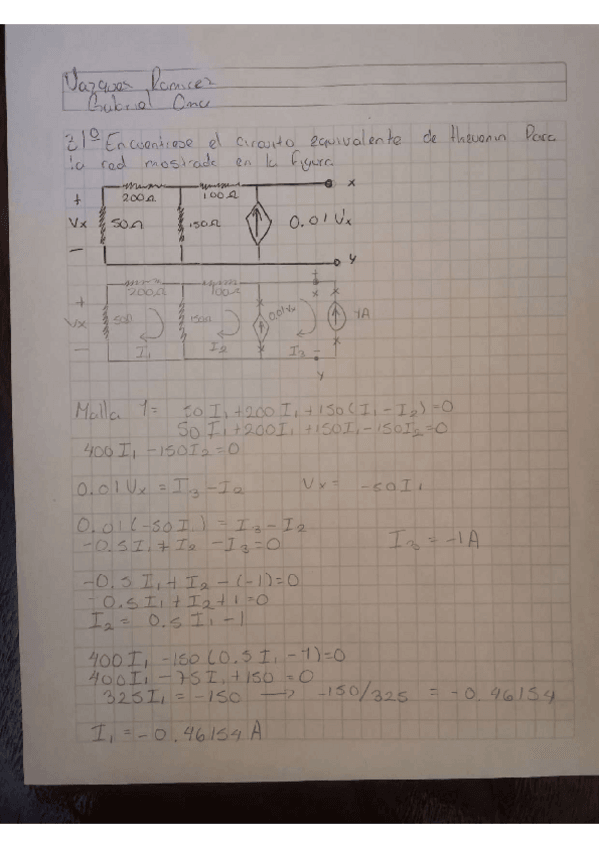 Vazquez Ramirez
Gabriel Omar
21° Encuentrese el circuito equivalente de thevenin Para
la red mostrada en la figura.
200Ω 100Ω x
+
Vx 50Ω 150Ω 0.01Vx
-
y
200Ω 100Ω +
x
+
Vx 50Ω 150Ω 0.01Vx 1A
- I₁ I₂ I₃ -
y
Malla 1= 50I₁+200I₁+150(I₁-I₂)=0
50I₁+200I₁+150I₁-150I₂=0
400I₁-150I₂=0
0.01Vx=I₃-I₂ Vx= -50I₁
0.01(-50I₁)=I₃-I₂
-0.5I₁+I₂-I₃=0 I₃=-1A
-0.5I₁+I₂-(-1)=0
-0.5I₁+I₂+1=0
I₂= 0.5I₁-1
400I₁-150(0.5I₁-1)=0
400I₁-75I₁+150=0
325I₁=-150 → -150/325 = -0.46154
I₁=-0.46154A